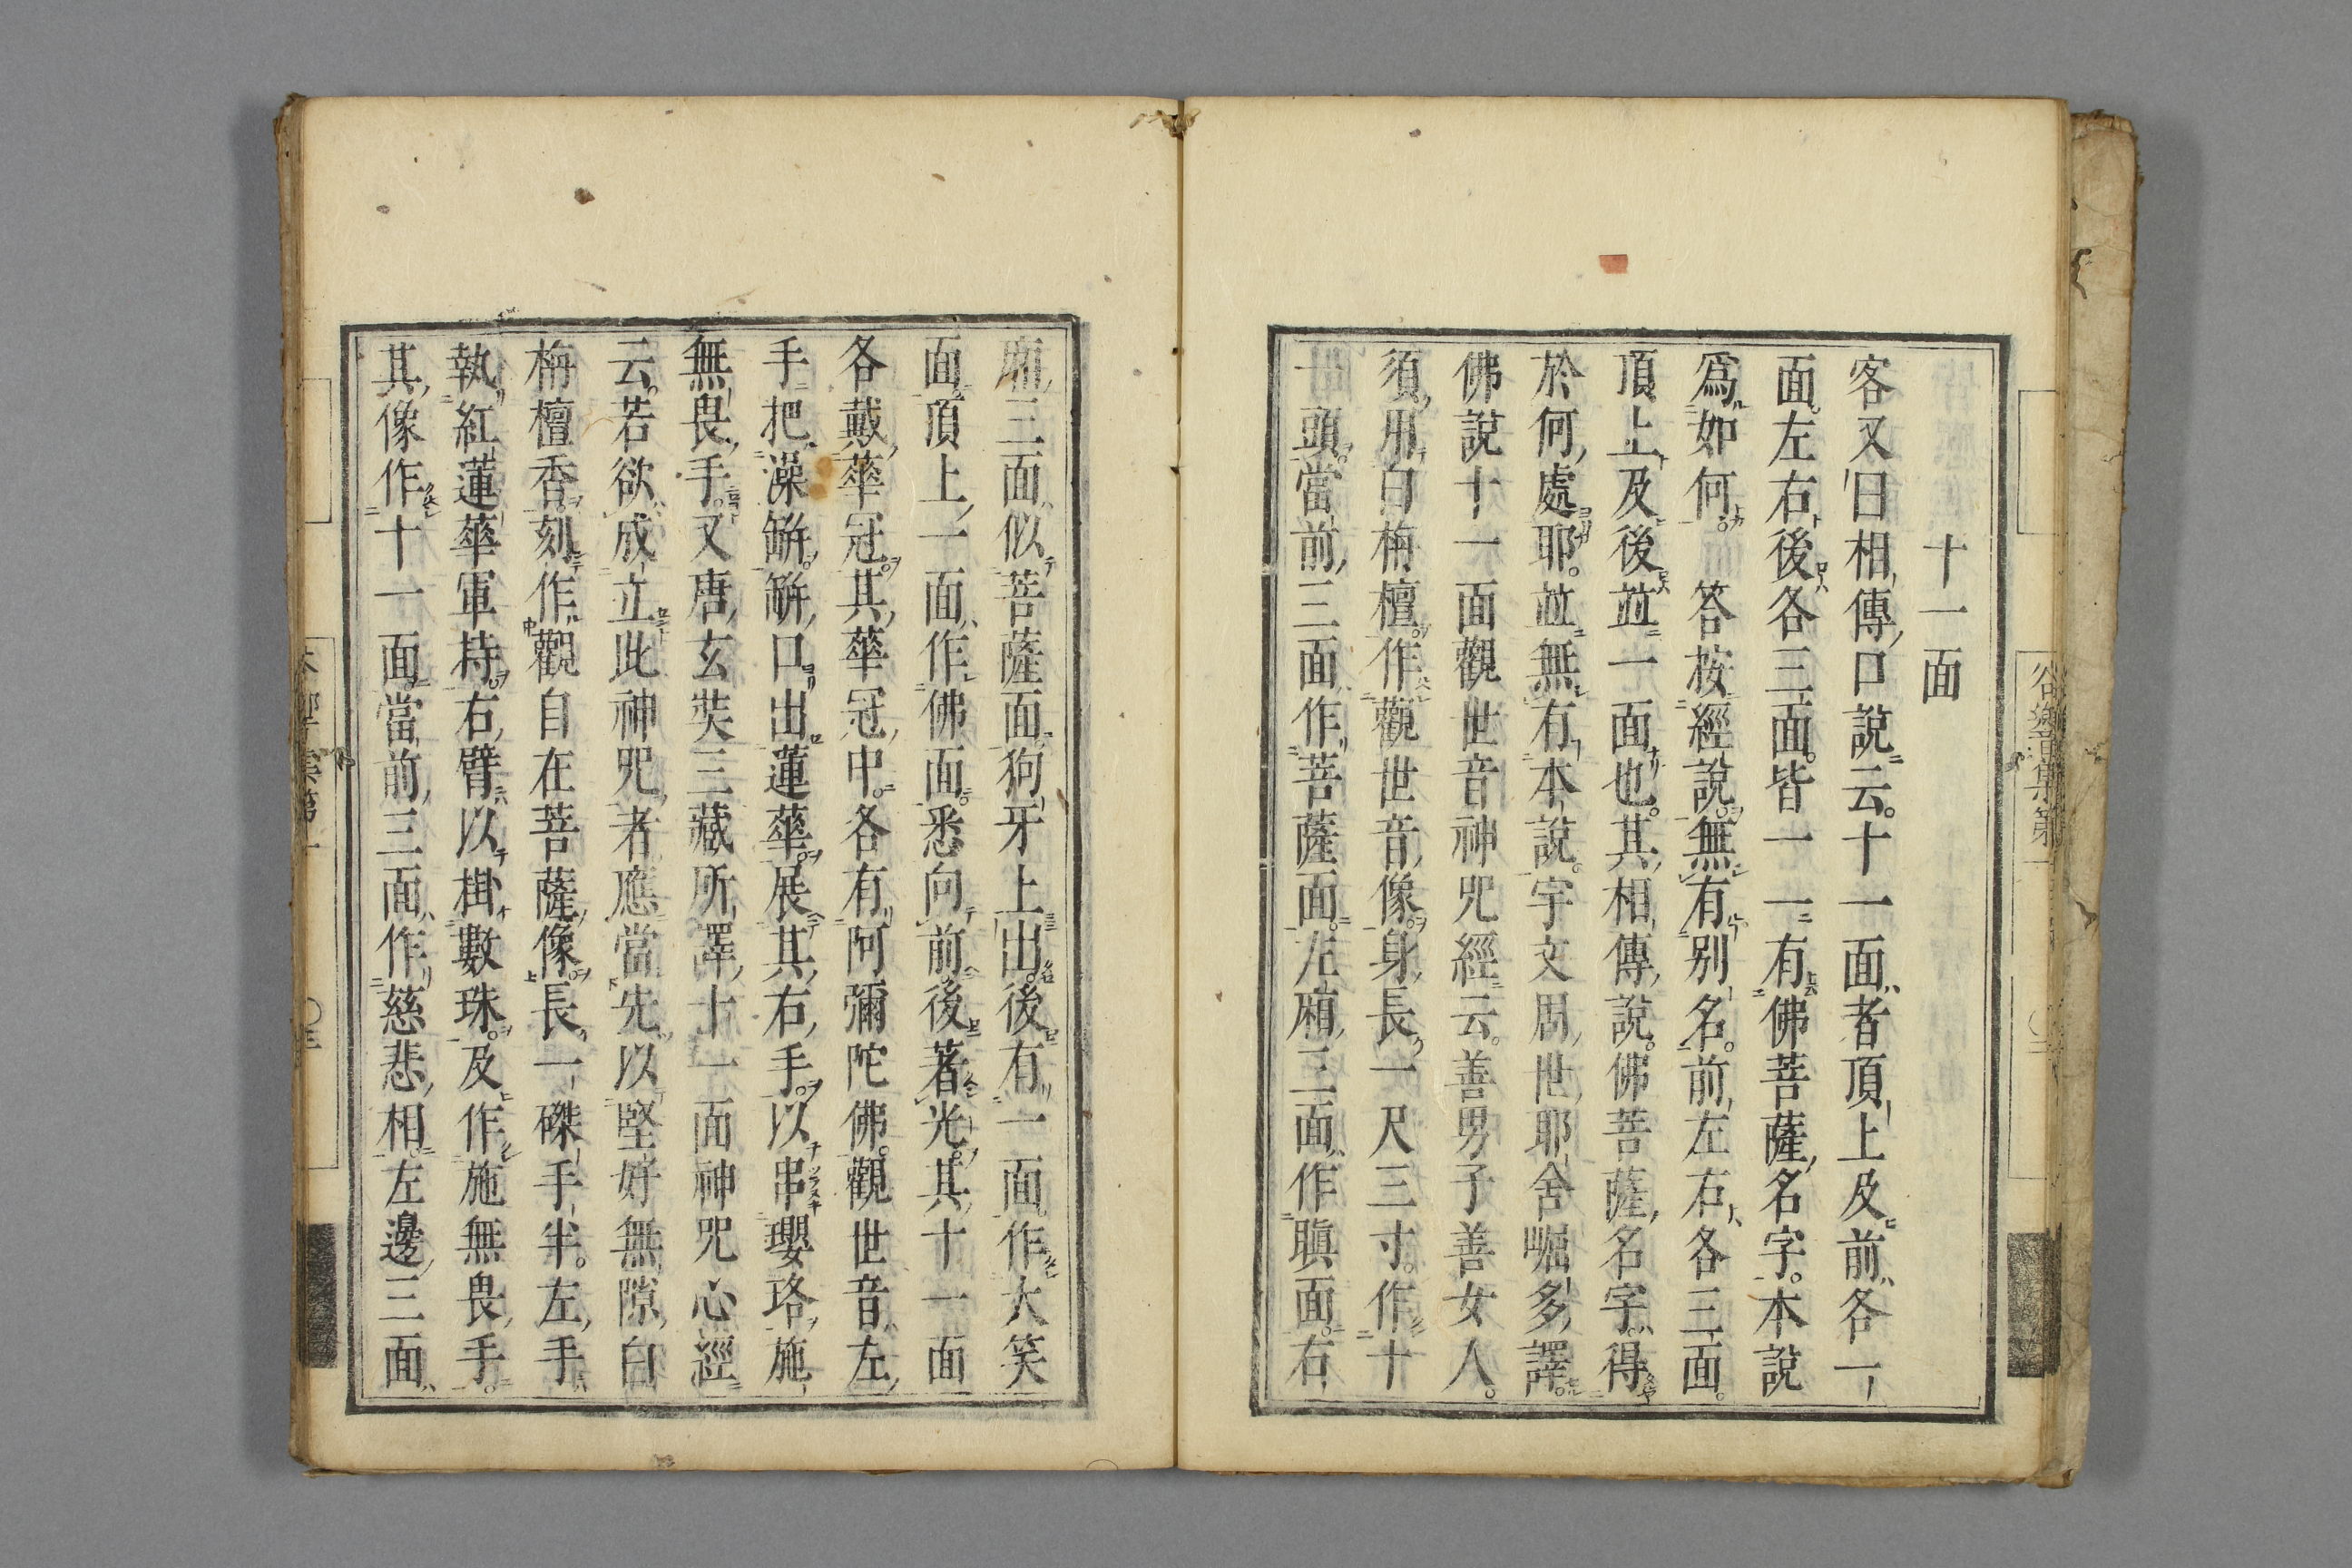 十一面
客又曰相傳口說云十一面者頂上及前各一
面左右後各三面皆一一有佛菩薩名字本說
爲如何 答按經說無有別名前左右各三面
頂上及後並一面也其相傳說佛菩薩名字得
於何處耶並無有本說宇文周世耶舍崛多譯
佛說十一面觀世音神咒經云善男子善女人
須用白栴檀作觀世音像身長一尺三寸作十
一頭當前三面作菩薩面左廂三面作瞋面右
廂三面似菩薩面狗牙上出後有一面作大笑
面頂上一面作佛面悉向前後著光其十一面
各戴華冠其華冠中各有阿彌陀佛觀世音左
手把澡缾缾口出蓮華展其右手以串瓔珞施
無畏手又唐玄奘三藏所譯十一面神咒心經
云若欲成立此神咒者應當先以堅好無隙白
栴檀香刻作觀自在菩薩像長一磔手半左手
執紅蓮華軍持右臂以掛數珠及作施無畏手
其像作十一面當前三面作慈悲相左邊三面